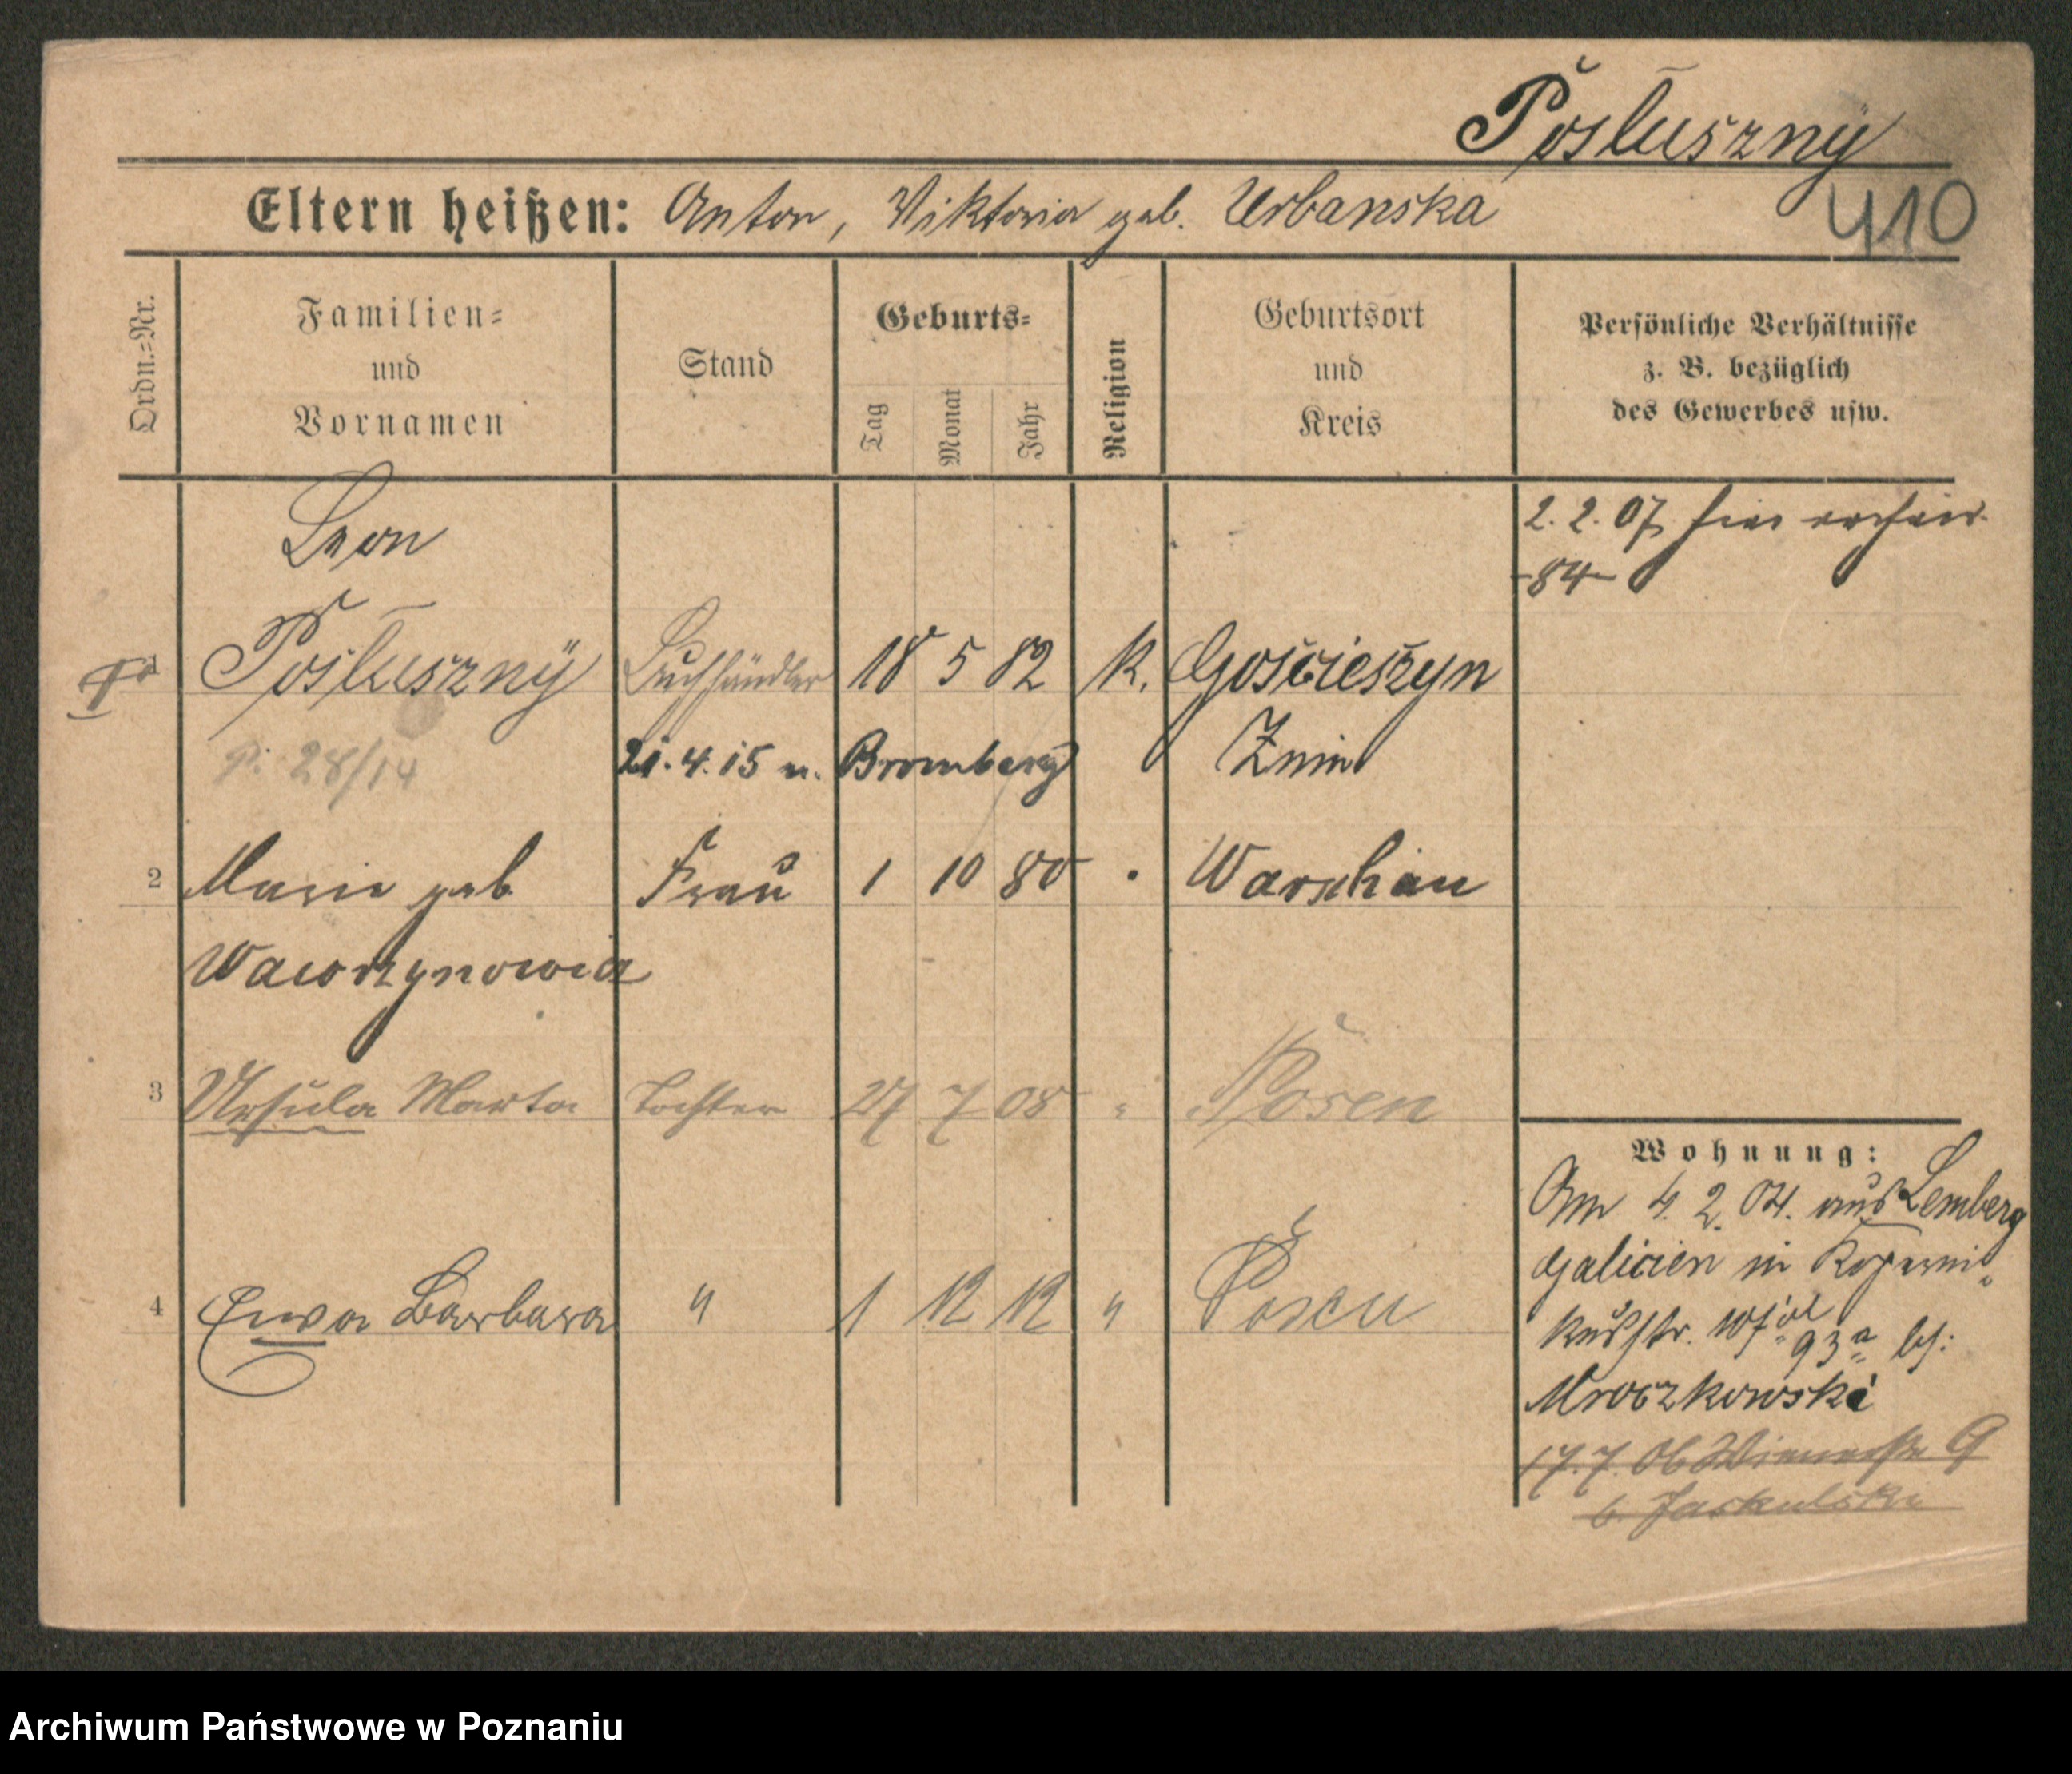 Posłuszny
Eltern heißen: Anton, Viktoria geb. Urbanska
410
Ordn.=Nr.
Familien=
und
Vornamen
Stand
Geburts=
Tag
Monat
Jahr
Religion
Geburtsort
und
Kreis
Persönliche Verhältnisse
z. B. bezüglich
des Gewerbes usw.
Leon
2. 2. 07 hier
-84-
1 Posłuszny Buchhändler 18 5 82 K. Gościeszyn
28/14 21. 4. 15 n. Bromberg Znin
2 Marie geb Frau 1 10 80 " Warschau
Wawrzynowicz
3 Ursula Marta Tochter 27 7 08 " Posen
4 Ewa Barbara " 1 12 12 " Posen
Wohnung:
Am 4. 2. 04. aus Lemberg
Galicien in Koperni=
kusstr. 93a bei:
Mroczkowski
17. 7. 06 Wienerstr 9
b. Jaskulski
Archiwum Państwowe w Poznaniu